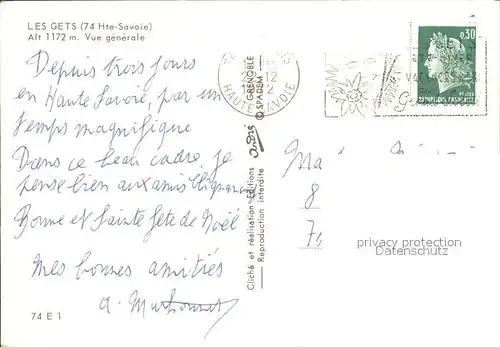 LES GETS (74 Hte-Savoie)
Alt 1172 m. Vue générale
Depuis trois jours
en Haute Savoie, par un
temps magnifique
Dans ce beau cadre, je
pense bien aux amis
Bonne et Sainte fête de Noël
Mes bonnes amitiés
a.
74 E 1
Cliché et réalisation Editions
Reproduction interdite
GRENOBLE
© SPADEM
12
HAUTE SAVOIE
0,30
REPUBLIQUE FRANÇAISE
Ma
8
privacy protection
Datenschutz